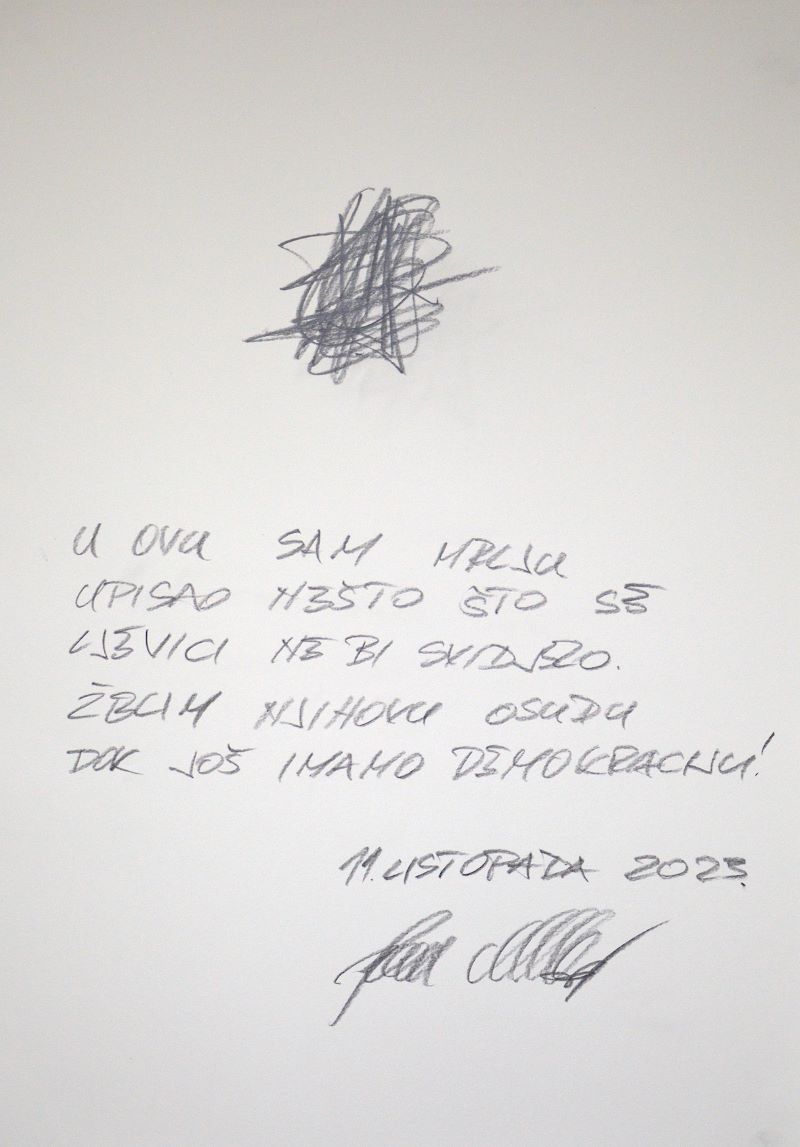 U OVU SAM MRLJU
UPISAO NEŠTO ŠTO SE
LJEVICI NE BI SVIDJELO.
ŽELIM NJIHOVU OSUDU
DOK JOŠ IMAMO DEMOKRACIJU!
11. LISTOPADA 2023.